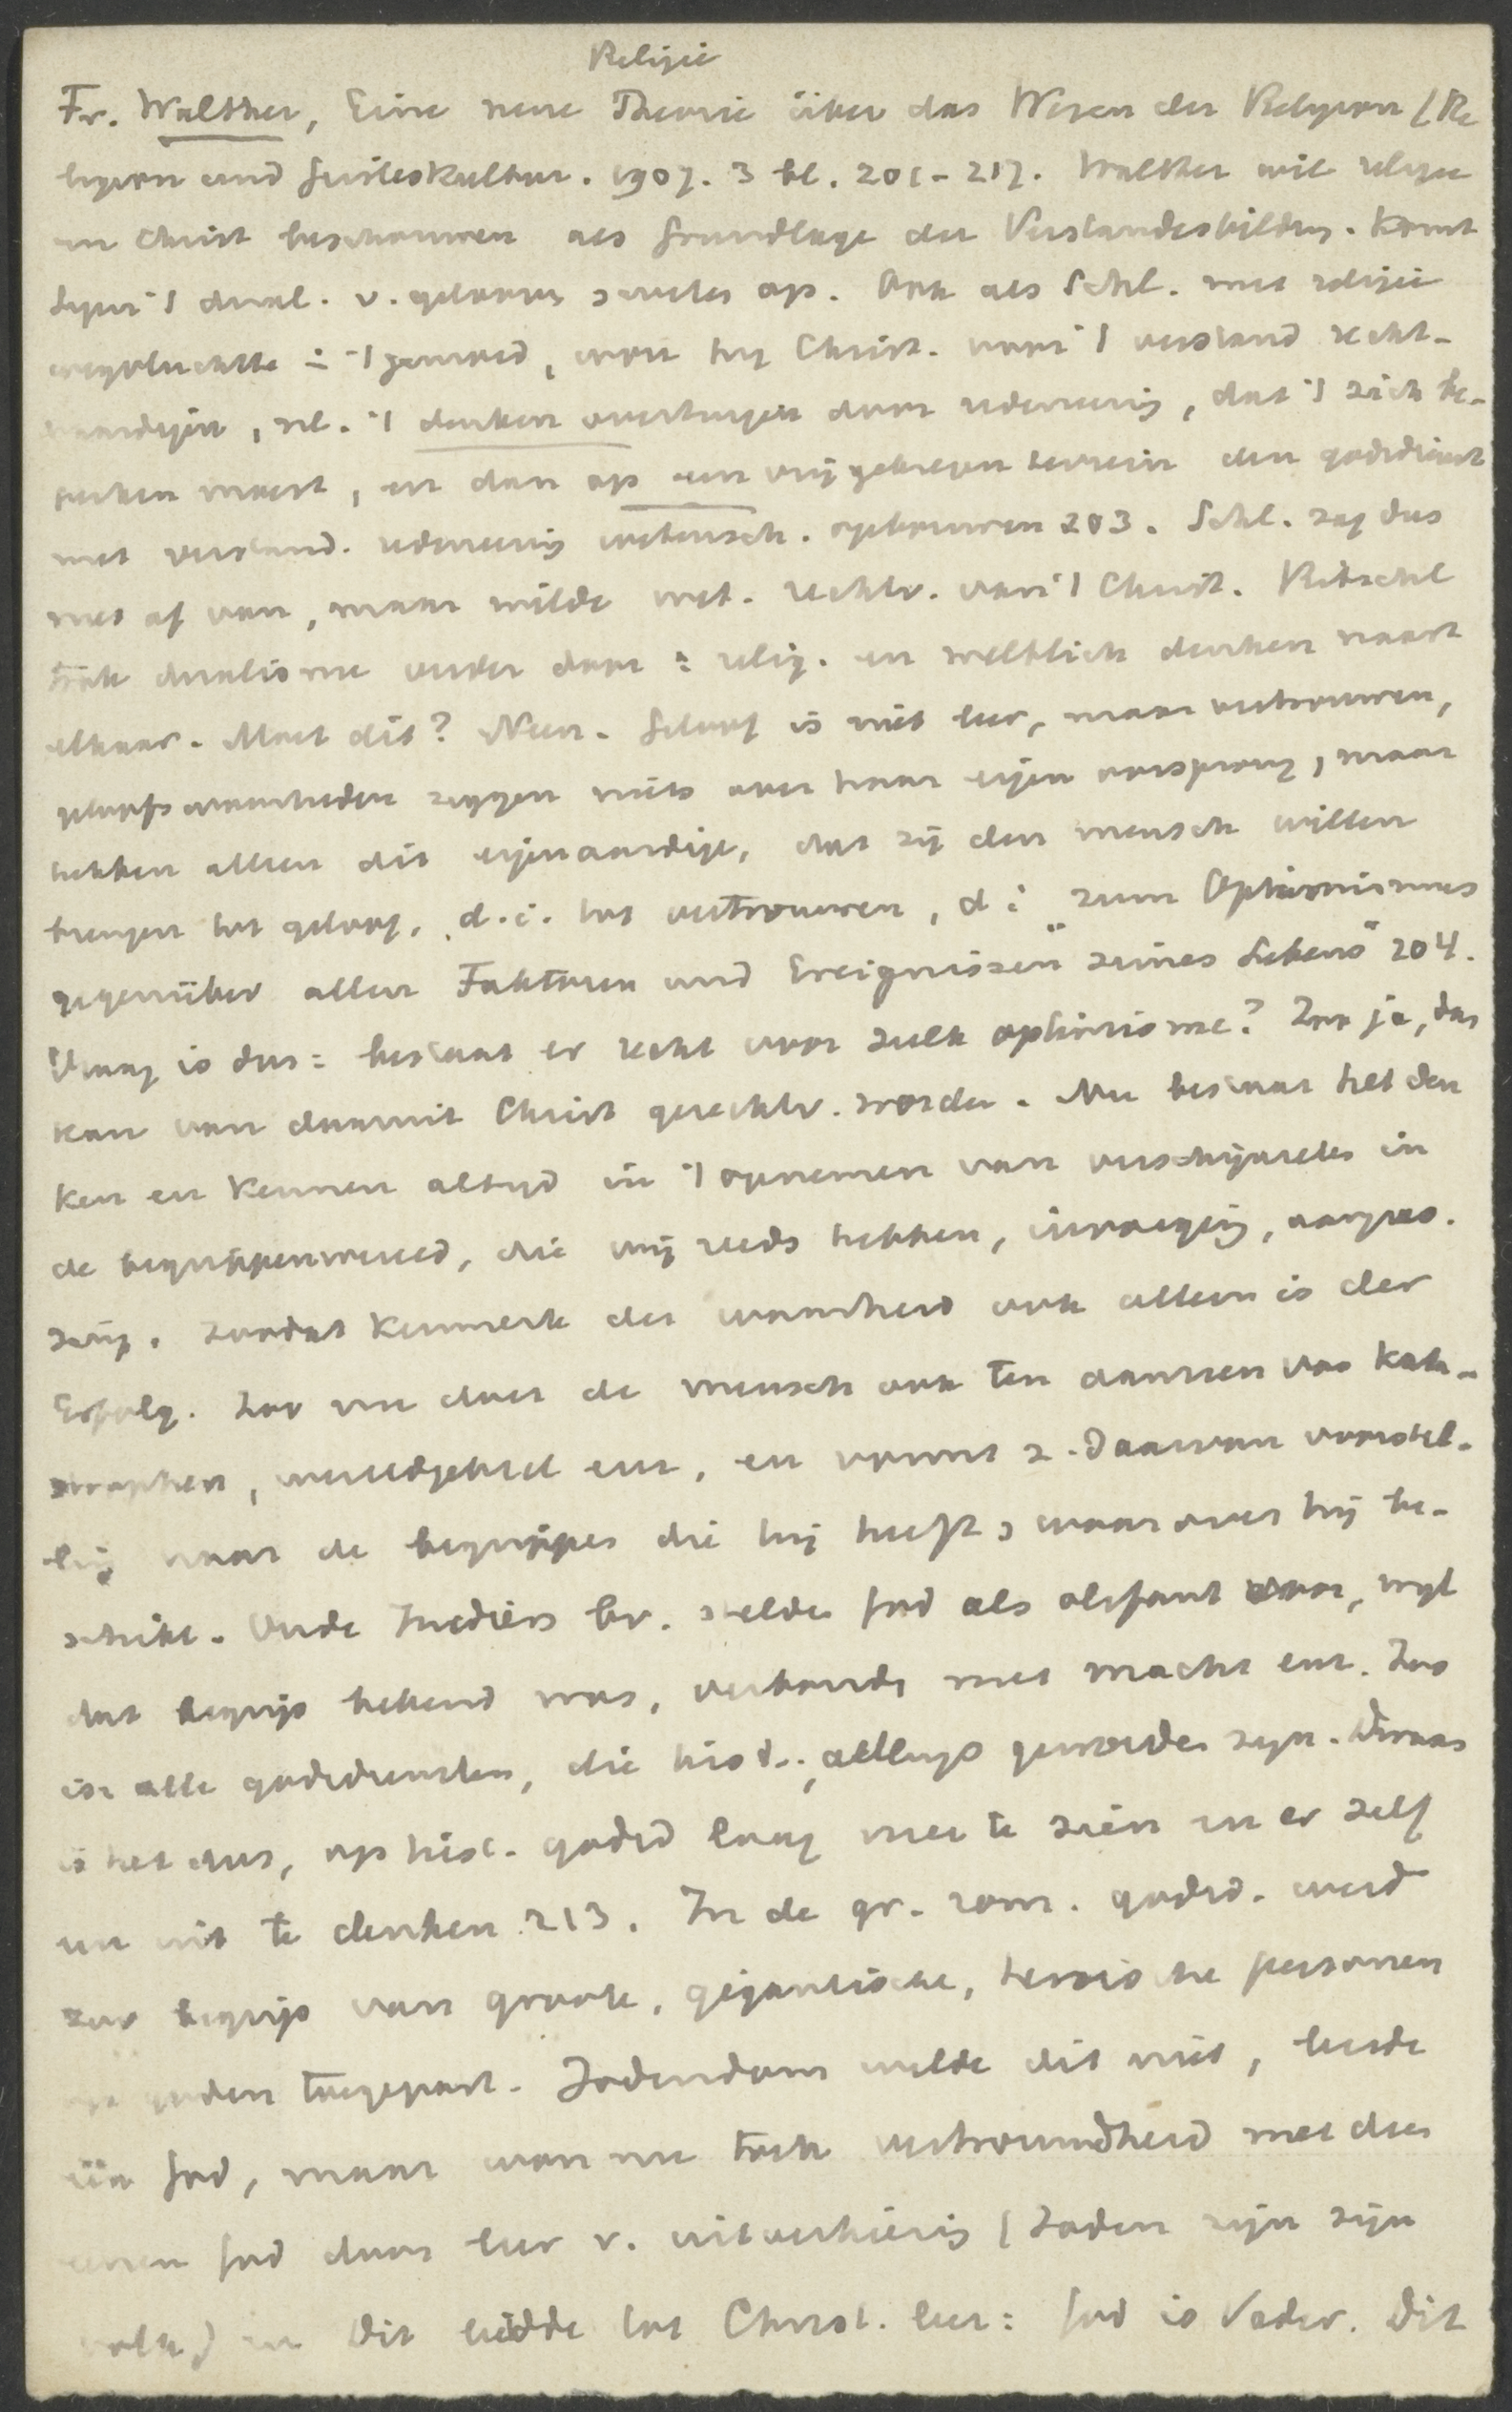 Religie
Fr. Walther, Eine neue Theorie über das Wesen der Religion (Re
ligion und Geisteskultur. 1907. 3 bl. 201-217. Walther wil religie
en Christ beschouwen als Grundlage der Verstandesbildung. Komt
tegen 't dual. v. geloof en weten op. Ook als Schl. met religie
wegvluchtte in 't gemoed, wou hij Christ. voor 't verstand recht-
vaardigen, nl. 't denken overtuigen door redeneering, dat 't zich be-
perken moest, en dan op een vrij gebleven terrein den godsdienst
met verstand. redeneering wetensch. opbouwen 203. Schl. zag dus
niet af van, maar wilde wet. rechtv. van 't Christ. Ritschl
trok dualisme verder door: relig. en weltlich denken naast
elkaar. Moet dit? Neen. Geloof is niet leer, maar vertrouwen,
geloofswaarheden zeggen niets over haar eigen oorsprong, maar
hebben alleen dit eigenaardige, dat zij den mensch willen
brengen tot geloof, d.i. tot vertrouwen, d i „zum Optimismus
gegenüber allen Faktoren und Ereignissen" seines Lebens" 204.
Vraag is dus: bestaat er recht voor zulk optimisme? Zoo ja, dan
kan van daaruit Christ gerechtv. worden. Nu bestaat het den
ken en kennen altijd in 't opnemen van verschijnselen in
de begrippenwereld, die wij reeds hebben, invoeging, aanpas.
sing. Zoodat kenmerk der waarheid ook alleen is der
Erfolg. Zoo nu doet de mensch ook ten aanzien van kata-
strophen, wereldgeheel enz, en vormt z. daarvan voorstel-
ling naar de begrippen die hij heeft en waarover hij be-
schikt. Oude Indiërs bv. stelden God als olifant voor, wijl
dat begrip bekend was, verbonds met macht enz. Zoo
in alle godsdiensten, die hist. allengs geworden zijn. Dwaas
is het dus, op hist. godsd laag neer te zien en er zelf
een uit te denken 213. In de gr. rom. godsd. werd
zoo begrip van groote, gigantische, heroische personen
op goden toegepast. Jodendom wilde dit niet, leerde
één God, maar won nu toch vertrouwdheid met dien
eenen God door leer v. uitverkiezing (Joden zijn zijn
volk) en dit leidde tot Christ. leer: God is Vader. Dit